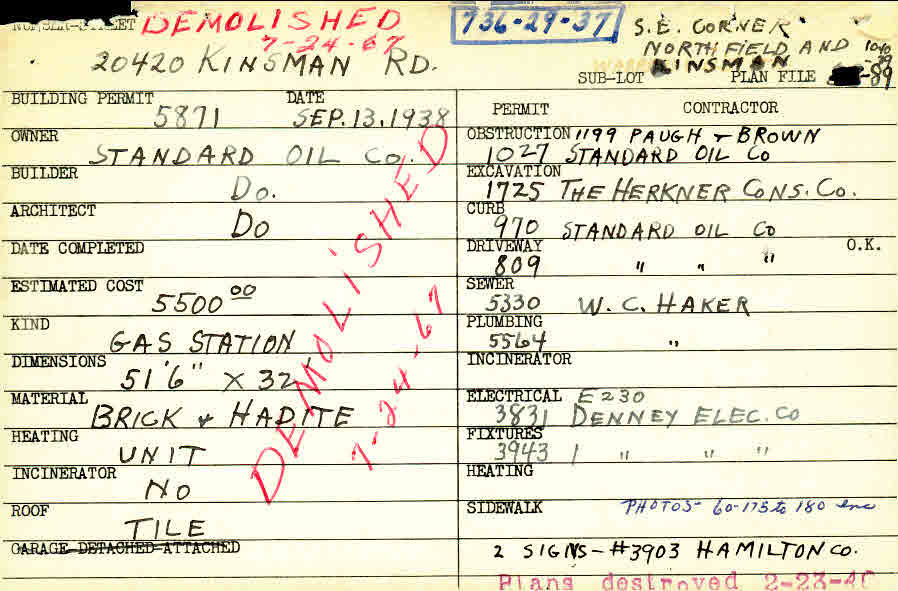 NUMBER-STREET DEMOLISHED
7-24-67
736-29-37
S.E. CORNER
NORTHFIELD AND
KINSMAN
20420 KINSMAN RD.
SUB-LOT PLAN FILE -89
BUILDING PERMIT DATE
5871 SEP. 13, 1938
OWNER
STANDARD OIL Co.
BUILDER
Do.
ARCHITECT
Do
DATE COMPLETED
ESTIMATED COST
5500 00
KIND
GAS STATION
DIMENSIONS
51'6" X 32'
MATERIAL
BRICK & HADITE
HEATING
UNIT
INCINERATOR
No
ROOF
TILE
GARAGE-DETACHED-ATTACHED
DEMOLISHED
7-24-67
PERMIT CONTRACTOR
OBSTRUCTION 1199 PAUGH & BROWN
1027 STANDARD OIL Co
EXCAVATION
1725 THE HERKNER CONS. Co.
CURB
970 STANDARD OIL Co
DRIVEWAY O.K.
809 " " "
SEWER
5330 W. C. HAKER
PLUMBING
5564 "
INCINERATOR
ELECTRICAL E230
3831 DENNEY ELEC. Co
FIXTURES
3943 1 " " "
HEATING
SIDEWALK PHOTOS- 60-175 to 180 inc
2 SIGNS - #3903 HAMILTON CO.
Plans destroyed 2-23-40